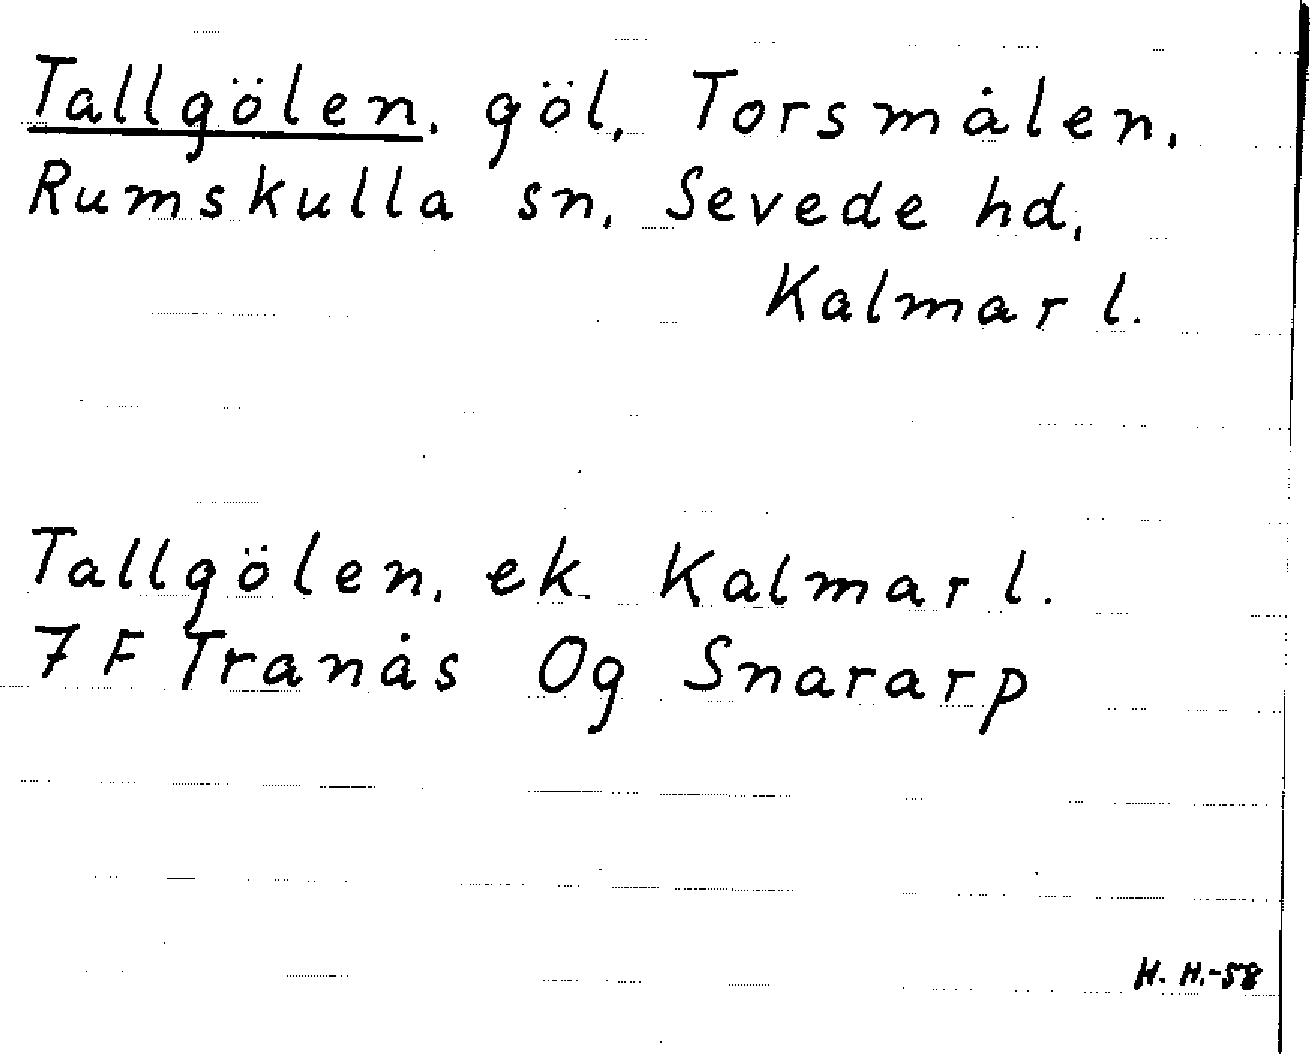 Tallgölen, göl, Torsmålen,
Rumskulla sn, Sevede hd,
Kalmar l.
Tallgölen, ek. Kalmar l.
7 F Tranås Og Snararp
H. H.-58